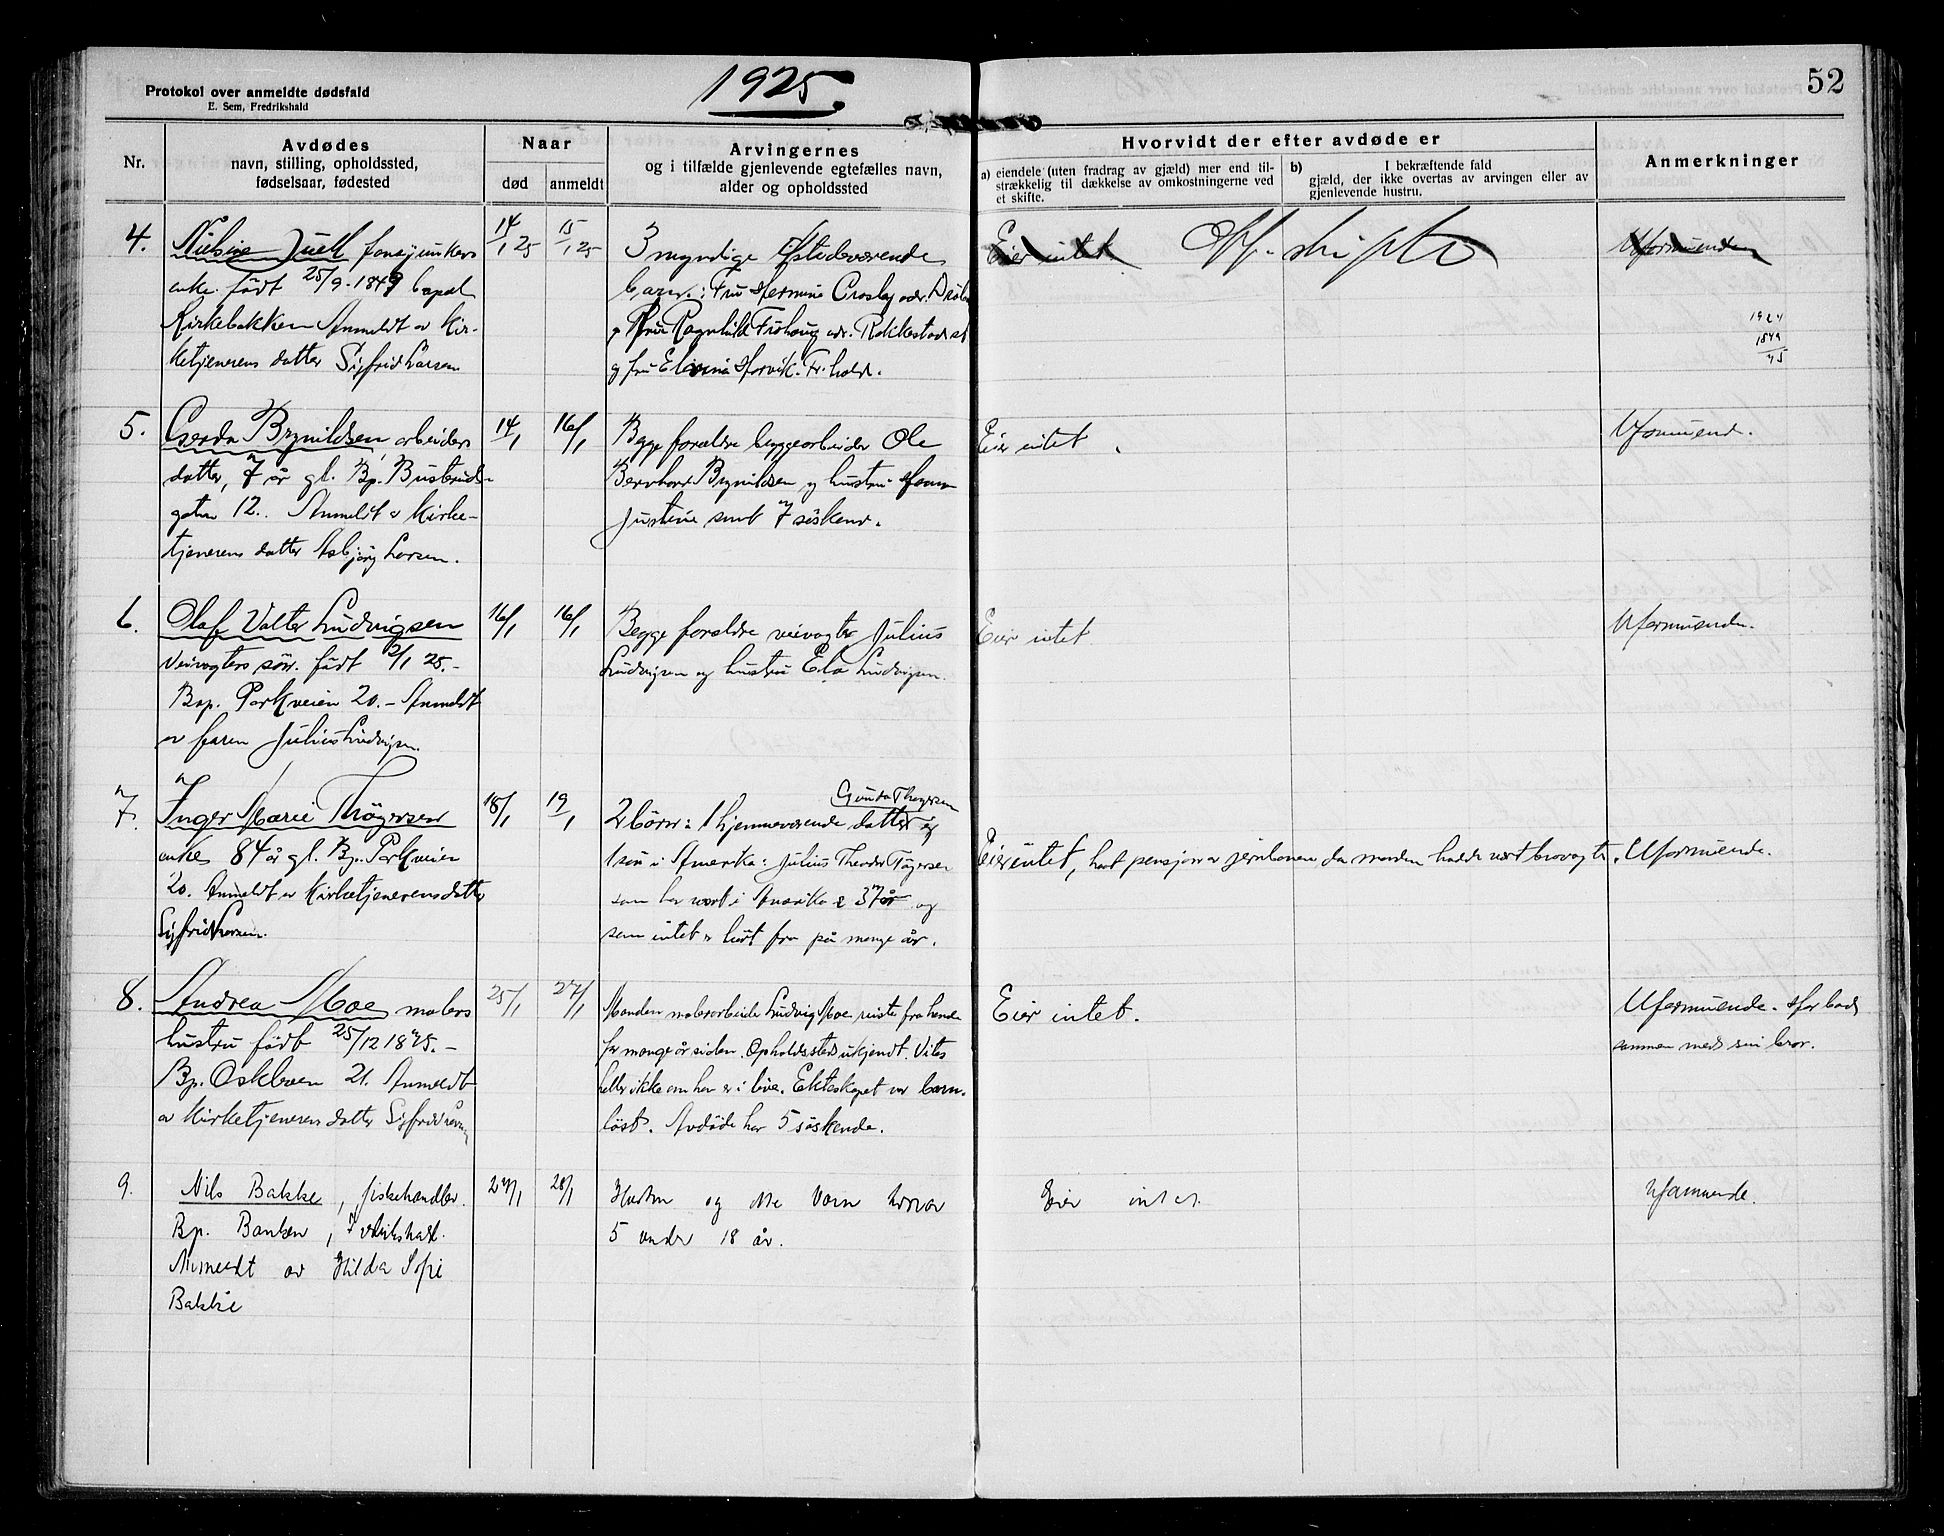 1925.
52
Protokol over anmeldte dødsfald
E. Sem, Fredrikshald
Nr.
Avdødes
navn, stilling, opholdssted,
fødselsaar, fødested
Naar
død
anmeldt
Arvingernes
og i tilfælde gjenlevende egtefælles navn,
alder og opholdssted
Hvorvidt der efter avdøde er
a) eiendele (uten fradrag av gjæld) mer end til-
strækkelig til dækkelse av omkostningerne ved
et skifte.
b) I bekræftende fald
gjæld, der ikke overtas av arvingen eller av
gjenlevende hustru.
Anmerkninger
4.
Nielsine Juell fanejunkers
enke. født 25/9-1849 bopæl
Kirkebakken Anmeldt av Kir-
ketjenerens datter Sigfrid Larsen
14/1 25
15/1 25
3 myndige tilstedeværende
barn: Fru Hermine Crosby adr.
og Fru Ragnhild Frøhaug adr. Rakkestad st
og fru Elvine Horvik. Fr.hald.
Eier intet.
Off. skifte
Uformuende
1924
1849
75
5.
Gerda Brynildsen arbeiders
datter, 7 år gl. Bp. Busterud-
gaten 12. Anmeldt av Kirke-
tjenerens datter Asbjørg Larsen.
14/1
16/1
Begge forældre byggearbeider Ole
Bernhard Brynildsen og hustru
Justine samt 7 søsken.
Eier intet.
Uformuend.
6.
Olaf Valter Ludvigsen
Veivogters søn. født 2/1 25.-
Bop. Parkveien 20. - Anmeldt
av faren Julius Ludvigsen.
16/1
16/1
Begge forældre veivogter Julius
Ludvigsen og hustru Ela Ludvigsen.
Eier intet
Uformuende.
7.
Inger Marie Thøgersen
enke 84 år gl. Bp. Parkveien
20. Anmeldt av Kirketjenerens datter
Sigfrid Larsen.
18/1
19/1
Gunda Thøgersen
2 børn: 1 hjemmeværende datter og
1 søn i Amerika: Julius Theodor Tøgersen
som har vært i Amerika i 37 år og
som intet er hørt fra på mange år.
Eier intet, hadt pensjon av jernbanen, da manden hadde vært brovagt.
Uformuende.
8.
Andrea Moe malers
hustru født 25/12 1875.-
Bp. Oskleven 21. Anmeldt
av Kirketjenerens datter Sigfrid Larsen
25/1
27/1
Manden malerarbeider Ludvig Moe reiste fra hende
for mange år siden. Opholdssted ukjendt. Vites
heller ikke om han er i live. Ekteskapet var barn-
løst. Avdøde har 5 søskende.
Eier intet.
Uformuende. Har bodd
sammen med sin bror.
9.
Nils Bakke, fiskehandler.
Bp. Banken, Fredrikshald.
Anmeldt av Hilda Sofie
Bakke
27/1
28/1
Hustru og otte barn hvorav
5 under 18 år.
Eier intet.
Uformuende.